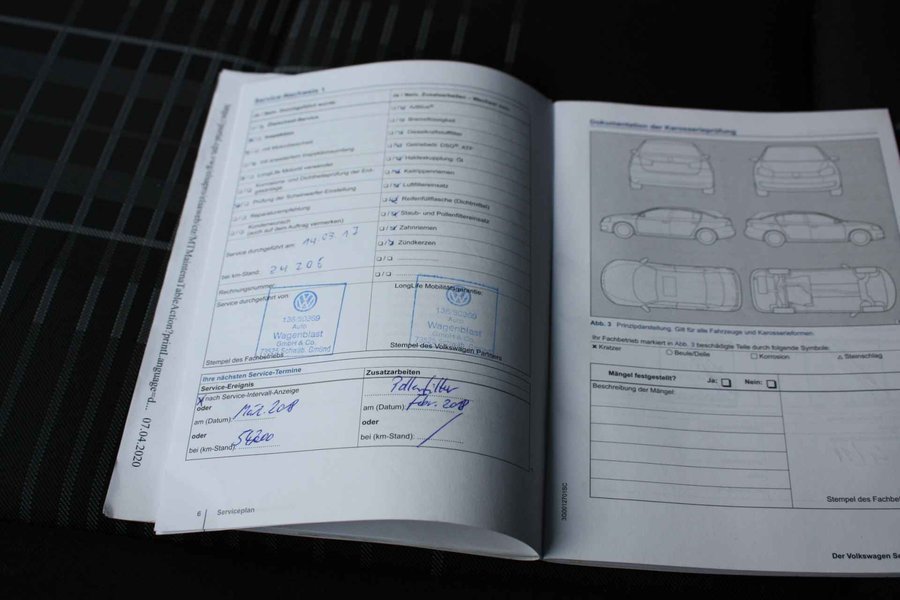 Service-Nachweis 1
Ja / Nein Durchgeführt wurde
Ölwechsel-Service
Inspektion
LongLife Mobilität verwendet
Prüfung der Scheinwerfer-Einstellung
Reparaturempfehlung
Kundenwunsch
(auch auf dem Auftrag vermerken)
Service durchgeführt am: 14.03.17
bei km-Stand: 24206
Rechnungsnummer:
Service durchgeführt von
136/50269
Auto
Wagenblast
GmbH & Co.
Stempel des Fachbetriebs
Ja / Nein Zusatzarbeiten
AdBlue®
Bremsflüssigkeit
Dieselkraftstofffilter
Getriebeöl: DSG® ATF
Haldexkupplung: Öl
Keilrippenriemen
Luftfiltereinsatz
Reifenfüllflasche (Dichtmittel)
Staub- und Pollenfiltereinsatz
Zahnriemen
Zündkerzen
LongLife Mobilitätsgarantie:
136/50269
Auto
Wagenblast
GmbH & Co.
Stempel des Volkswagen Partners
Ihre nächsten Service-Termine
Service-Ereignis
X nach Service-Intervall-Anzeige
oder
am (Datum): März 2018
oder
bei (km-Stand):
Zusatzarbeiten
Pollenfilter
am (Datum): Febr. 2018
oder
bei (km-Stand):
6 Serviceplan
07.04.2020
Dokumentation der Karosserieprüfung
Abb. 3 Prinzipdarstellung. Gilt für alle Fahrzeuge und Karosserieformen.
Ihr Fachbetrieb markiert in Abb. 3 beschädigte Teile durch folgende Symbole:
✕ Kratzer ○ Beule/Delle □ Korrosion △ Steinschlag
Mängel festgestellt? Ja: □ Nein: □
Beschreibung der Mängel:
Stempel des Fachbe
Der Volkswagen Se